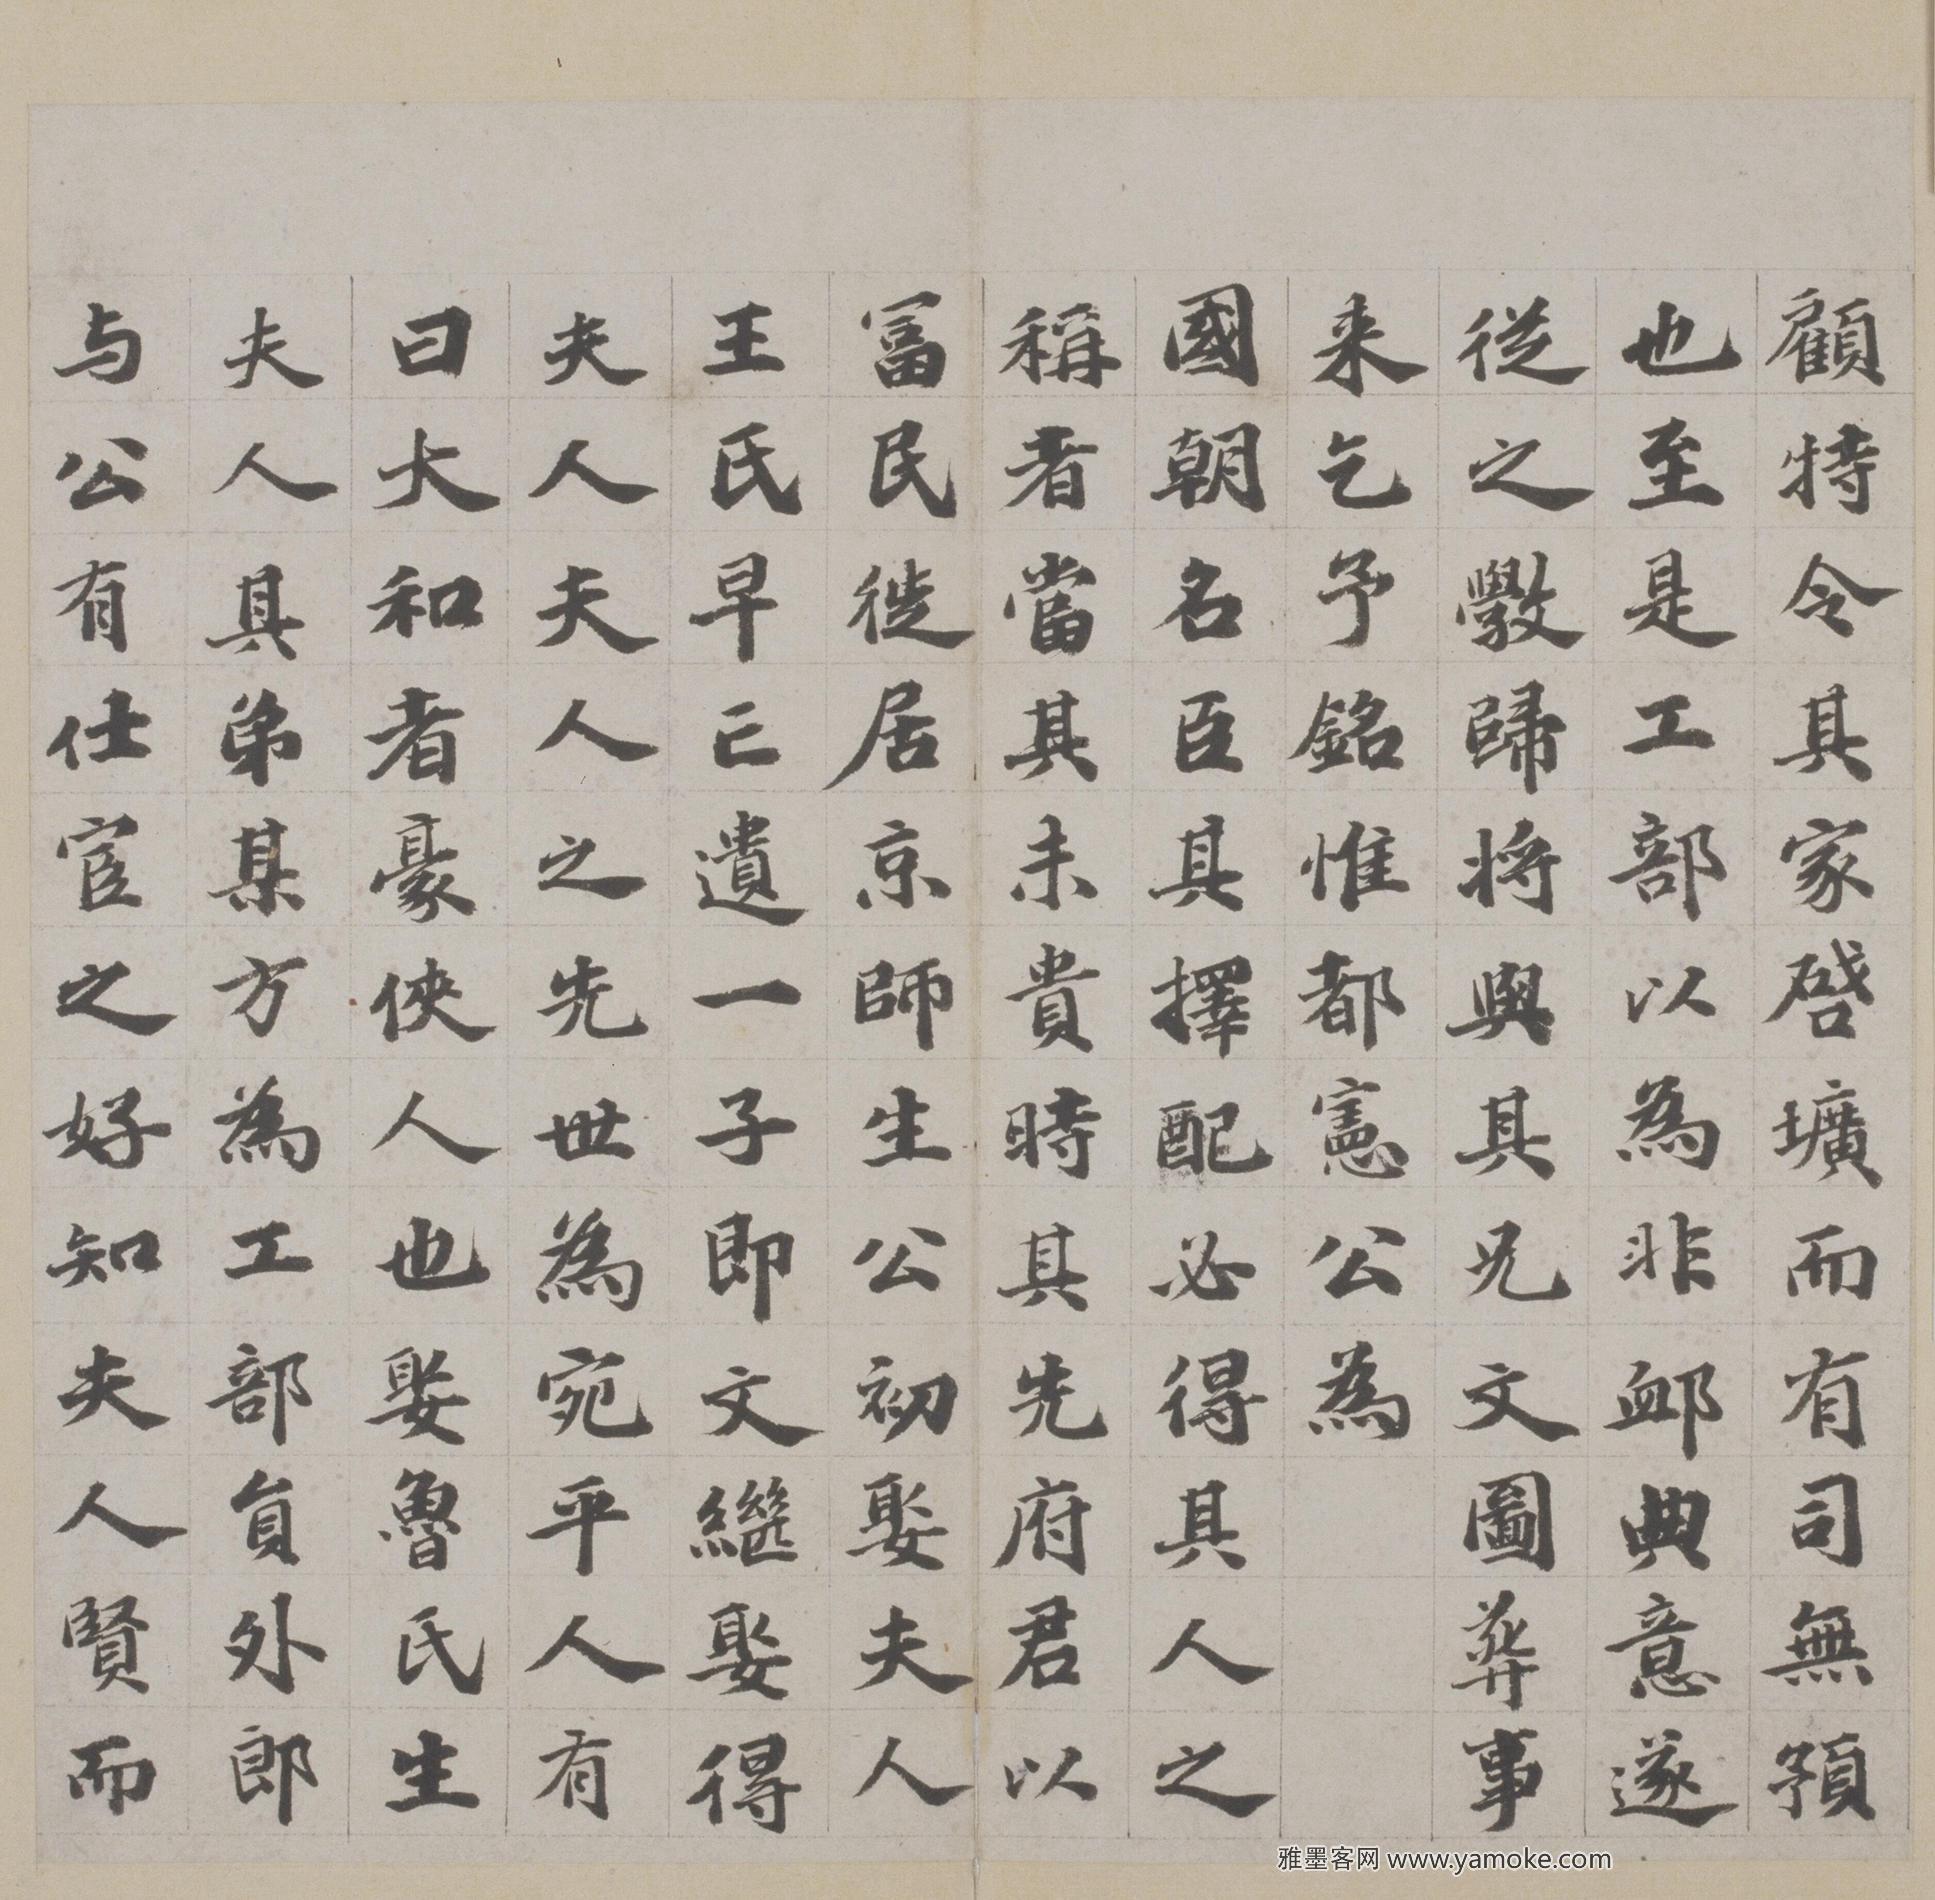 顧特令其家啓壙而有司無預
也至是工部以為非卹典意遂
從之斆歸將與其兄文圖葬事
来乞予銘惟都憲公為
國朝名臣其擇配必得其人之
稱者當其未貴時其先府君以
冨民徙居京師生公初娶夫人
王氏早亡遺一子即文繼娶得
夫人夫人之先世為宛平人有
曰大和者豪俠人也娶魯氏生
夫人具弟某方為工部員外郎
与公有仕宦之好知夫人賢而
雅墨客网 www.yamoke.com